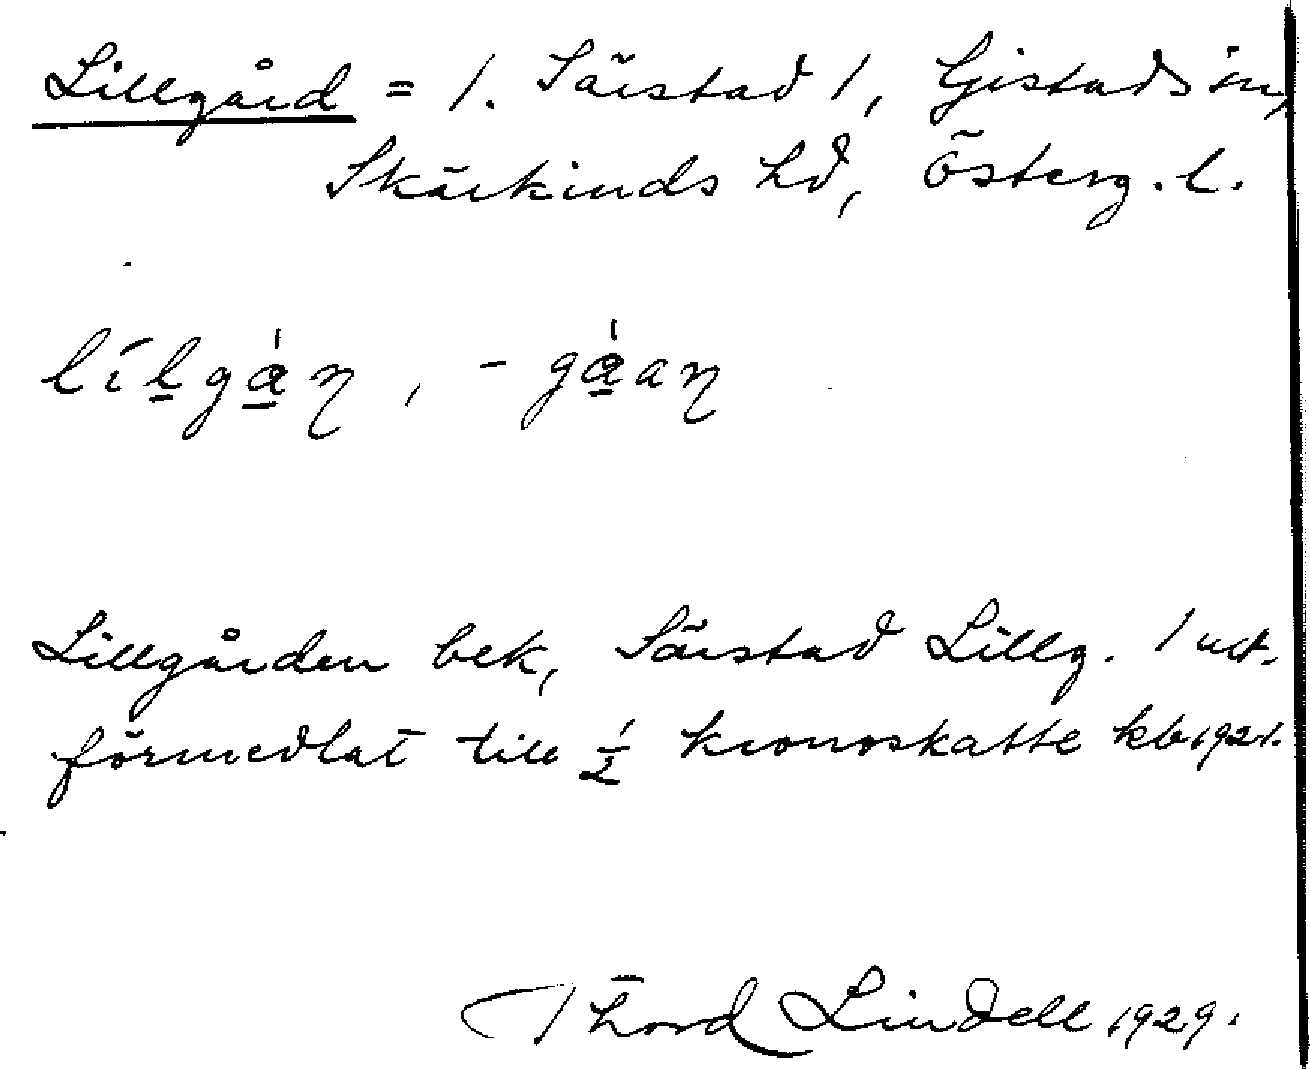 Lillgård = 1. Särstad 1, Gistads sn,
Skärkinds hd, Österg. l.
lílg̱ǻ̱ņ, -gǻ̱aņ
Lillgården bek, Särstad Lillg. 1
förmedlat till ½ kronoskatte kb 1921.
Thord Lindell 1929.